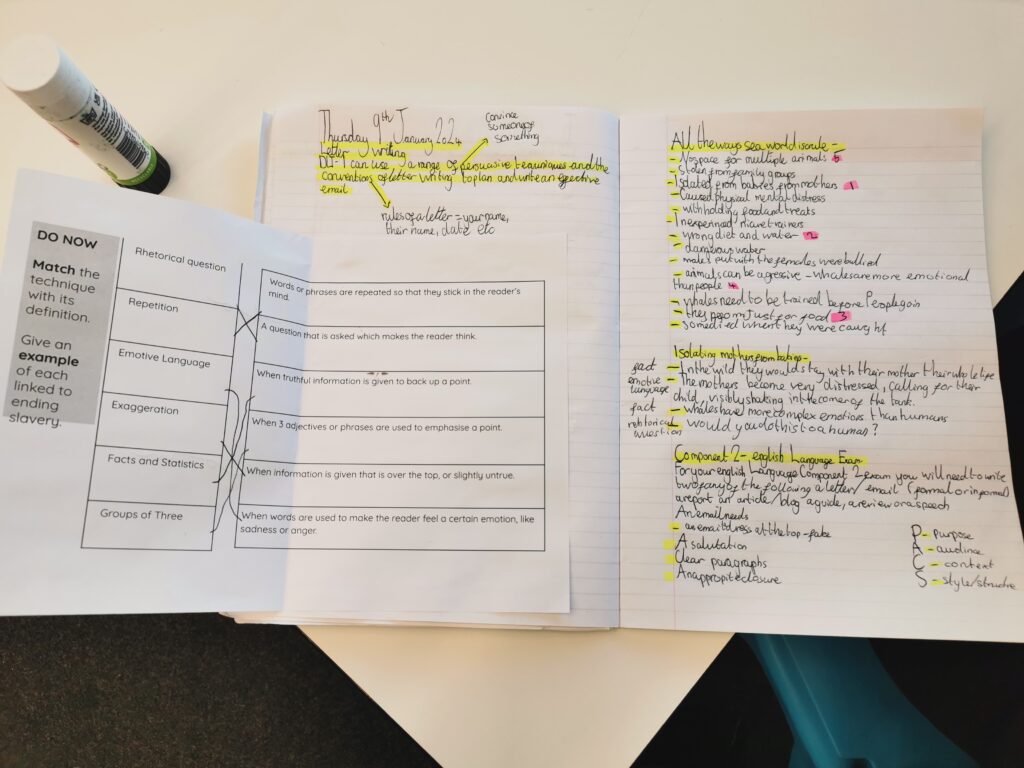 Thursday 9th January 2024
Letter writing
DL - I can use a range of persuasive tequniques and the
conventions of letter writing to plan and write an effective
email
convince
someone of
something
rules of a letter = your name,
their name, date etc
DO NOW
Match the
technique
with its
definition.
Give an
example
of each
linked to
ending
slavery.
Rhetorical question
Repetition
Emotive Language
Exaggeration
Facts and Statistics
Groups of Three
Words or phrases are repeated so that they stick in the reader's
mind.
A question that is asked which makes the reader think.
When truthful information is given to back up a point.
When 3 adjectives or phrases are used to emphasise a point.
When information is given that is over the top, or slightly untrue.
When words are used to make the reader feel a certain emotion, like
sadness or anger.
All the ways sea world is rude -
- No space for multiple animals 5
- Stolen from family groups
- Isolated from babies from mothers 1
- Caused physical mental distress
- withholding food and treats
- Inexperined trainers
- wrong diet and water 2
- dangerous water
- males put with the females were bullied
- animals can be agressive - whales are more emotional
than people 4
- whales need to be trained before People go in
- they peform just for food 3
- Some died when they were caught
Isolating mothers from babies -
fact - In the wild they would stay with their mother their whole life
emotive language - The mothers become very distressed, calling for their
child, visibly shaking in the corner of the tank.
fact - whales have more complex emotions than humans
rehtorical question - would you do this to a human?
Component 2 - english Language Exam
For your english Language Component 2 exam you will need to write
two of any of the following a letter/ email (formal or informal)
a report an article/ blog a guide, a review or a speech
An email needs
- an email adress at the top - fake
- A salutation
- Clear paragraphs
- An appropite closure
P - purpose
A - audince
C - context
S - style/structre